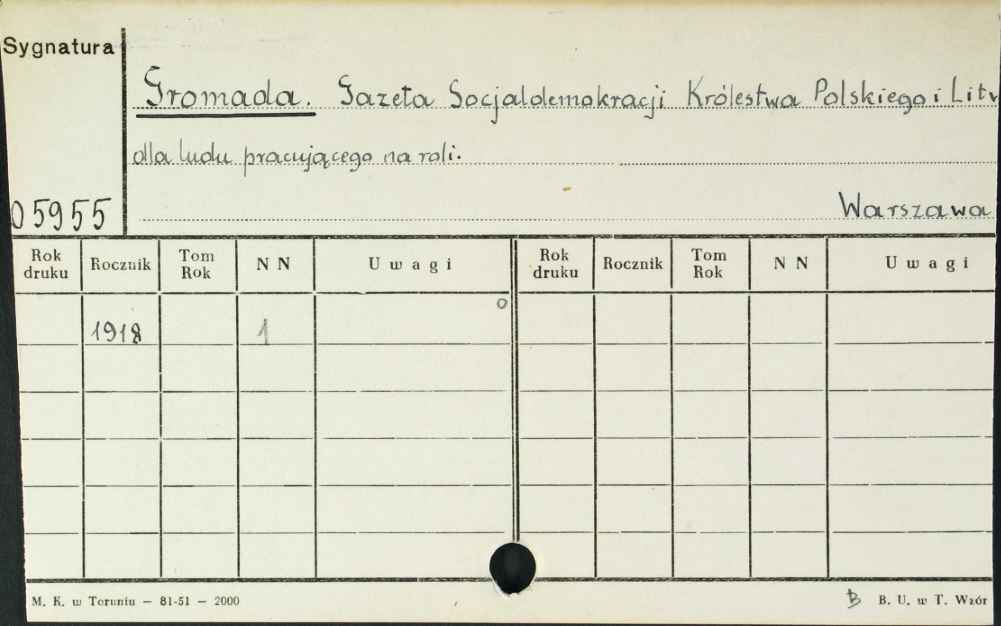 Sygnatura
Gromada. Gazeta Socjaldemokracji Królestwa Polskiego i Litw
dla ludu pracującego na roli.
05955
Warszawa
Rok druku Rocznik Tom Rok N N Uwagi Rok druku Rocznik Tom Rok N N Uwagi
o
1918 1
M. K. w Toruniu — 81-51 — 2000 B. U. w T. Wzór